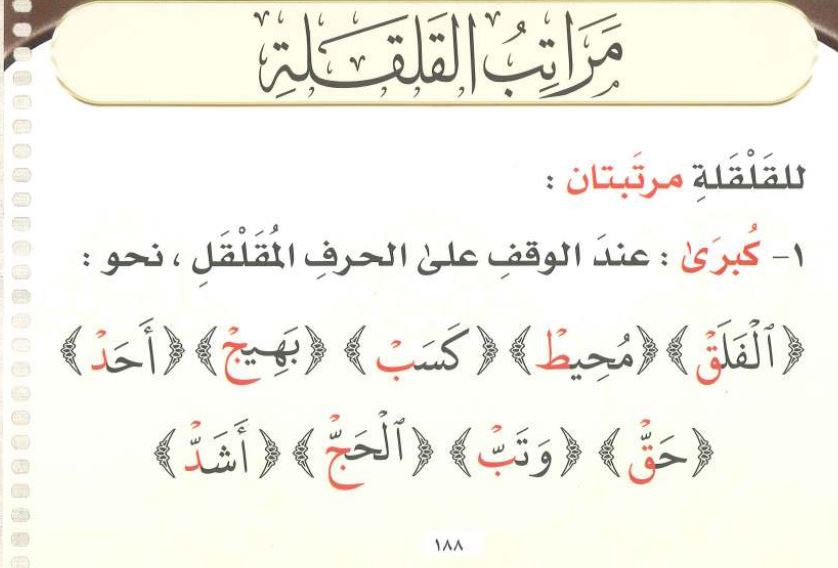 مَرَاتِبُ القَلقَلَةِ
للقَلْقَلةِ مرتَبتان :
١- كُبرَىٰ : عندَ الوقفِ علىٰ الحرفِ المُقَلْقَلِ ، نحو :
﴿ٱلْفَلَقْ﴾ ﴿مُحِيطْ﴾ ﴿كَسَبْ﴾ ﴿بَهِيجْ﴾ ﴿أَحَدْ﴾
﴿حَقّْ﴾ ﴿وَتَبّْ﴾ ﴿ٱلْحَجّْ﴾ ﴿أَشَدّْ﴾
١٨٨